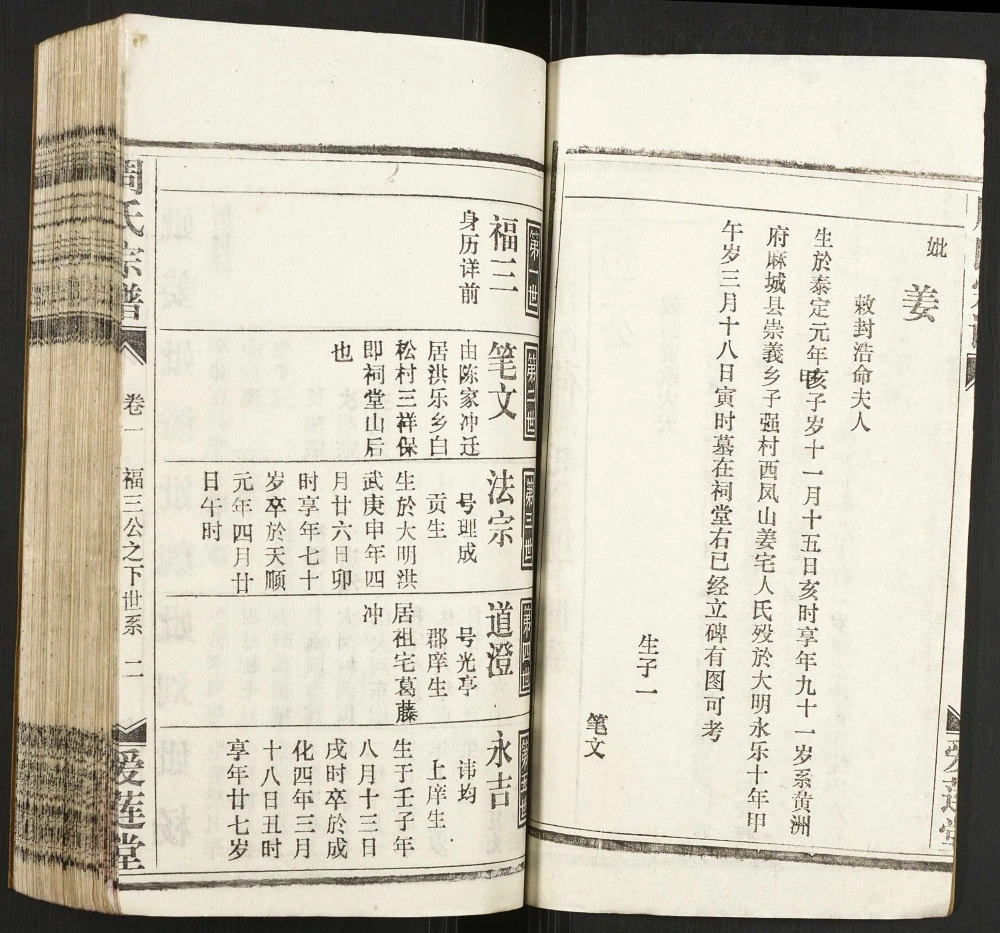 妣
姜
敕封浩命夫人
生於泰定元年亥子岁十一月十五日亥时享年九十一岁系黄洲
府麻城县崇義乡子强村西凤山姜宅人氏殁於大明永乐十年甲
午岁三月十八日寅时墓在祠堂右已经立碑有图可考
生子一
笔文
第一世
福三
身历详前
第二世
笔文
由陈家冲迁
居洪乐乡白
松村三祥保
即祠堂山后
也
第三世
法宗
号理成
贡生
生於大明洪
武庚申年四
月廿六日卯
时享年七十
岁卒於天顺
元年四月廿
日午时
第四世
道澄
号光亭
郡庠生
居祖宅葛藤
冲
第五世
永吉
讳均
上庠生
生于壬子年
八月十三日
戌时卒於成
化四年三月
十八日丑时
享年廿七岁
周氏宗谱
卷一
福三公之下世系
二
爱莲堂